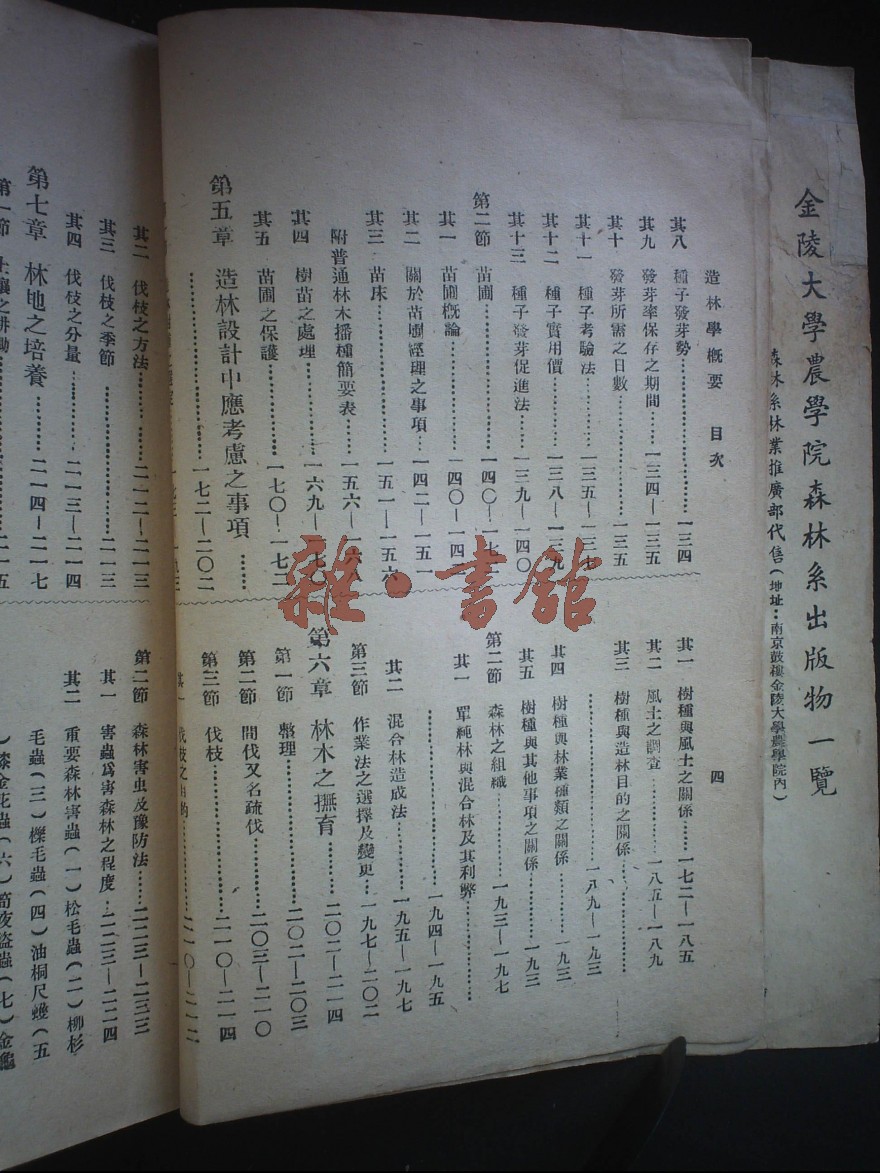 金陵大學農學院森林系出版物一覽
森林系林業推廣部代售(地址:南京鼓樓金陵大學農學院內)
造林學概要 目次 四
其八 種子發芽勢……一三四
其九 發芽率保存之期間……一三四—一三五
其十 發芽所需之日數……一三五
其十一 種子考驗法……一三五—一三七
其十二 種子實用價……一三八—一三九
其十三 種子發芽促進法……一三九—一四〇
第二節 苗圃……一四〇—一七二
其一 苗圃概論……一四〇—一四二
其二 關於苗圃經理之事項……一四二—一五一
其三 苗床……一五一—一五六
附普通林木播種簡要表……一五六—一六八
其四 樹苗之處理……一六九—一七〇
其五 苗圃之保護……一七〇—一七二
第五章 造林設計中應考慮之事項……
……一七二—二〇二
其一 樹種與風土之關係……一七二—一八五
其二 風土之調查……一八五—一八九
其三 樹種與造林目的之關係……
……一八九—一九三
其四 樹種與林業種類之關係……一九三
其五 樹種與其他事項之關係……一九三
第二節 森林之組織……一九三—一九七
其一 單純林與混合林及其利弊……
……一九四—一九五
其二 混合林造成法……一九五—一九七
第三節 作業法之選擇及變更…一九七—二〇二
第六章 林木之撫育……二〇二—二一四
第一節 整理……二〇二—二〇三
第二節 間伐又名疏伐……二〇三—二一〇
第三節 伐枝……二一〇—二一四
其一 伐枝之目的……二一〇—二一二
其二 伐枝之方法……二一二—二一三
其三 伐枝之季節……二一三
其四 伐枝之分量……二一三—二一四
第七章 林地之培養……二一四—二一七
第一節 土壤之耕耡……二一五
第二節 森林害虫及豫防法……二二三—二三三
其一 害蟲爲害森林之程度…二二三—二二四
其二 重要森林害蟲(一)松毛蟲(二)柳杉
毛蟲(三)櫟毛蟲(四)油桐尺蠖(五
)漆金花蟲(六)筍夜盜蟲(七)金龜
雜·書館